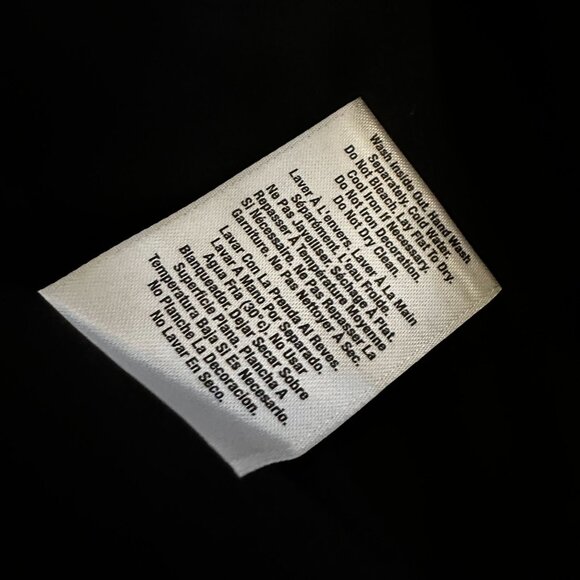 Wash Inside Out. Hand Wash
Separately. Cold Water.
Do Not Bleach. Lay Flat To Dry.
Cool Iron If Necessary.
Do Not Iron Decoration.
Do Not Dry Clean.
Laver À L'envers. Laver À La Main
Séparément. L'eau Froide.
Ne Pas Javelliser. Séchage À Plat.
Repasser À Température Moyenne
Si Nécessaire. Ne Pas Repasser La
Garniture. Ne Pas Nettoyer À Sec.
Lavar Con La Prenda Al Reves.
Lavar A Mano Por Separado.
Agua Fria (30°c). No Usar
Blanqueador. Dejar Secar Sobre
Superficie Plana. Plancha A
Temperatura Baja Si Es Necesario.
No Planche La Decoracion.
No Lavar En Seco.